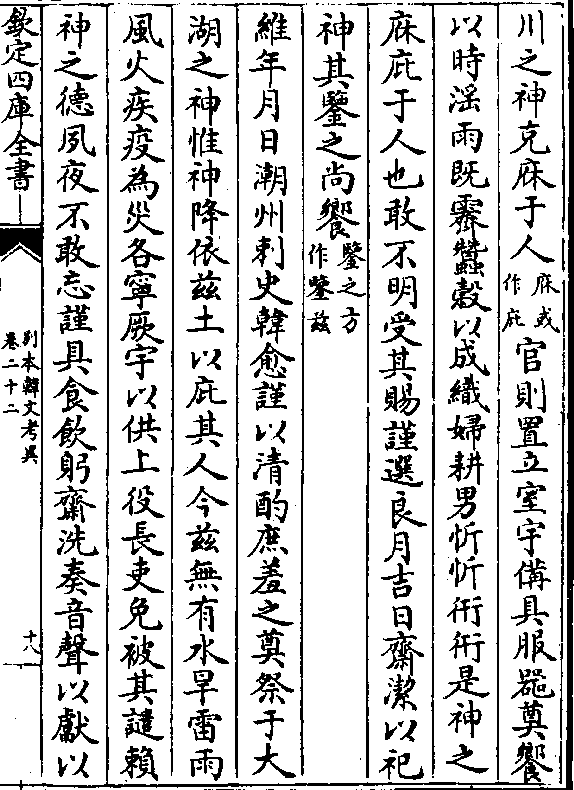 川之神克庥于人庥或作庇官則置立室宇備具服器奠饗
以時淫雨既霽蠶穀以成織婦耕男忻忻衎衎是神之
庥庇于人也敢不明受其賜謹選良月吉日齋潔以祀
神其鑒之尚饗鑒之方作鑒兹
維年月日潮州刺史韓愈謹以清酌庶羞之奠祭于大
湖之神惟神降依兹土以庇其人今兹無有水旱雷雨
風火疾疫為災各寧厥宇以供上役長吏免被其譴賴
神之德夙夜不敢忘謹具食飲躬齋洗奏音聲以獻以
欽定四庫全書
别本韓文考異
卷二十二
十八